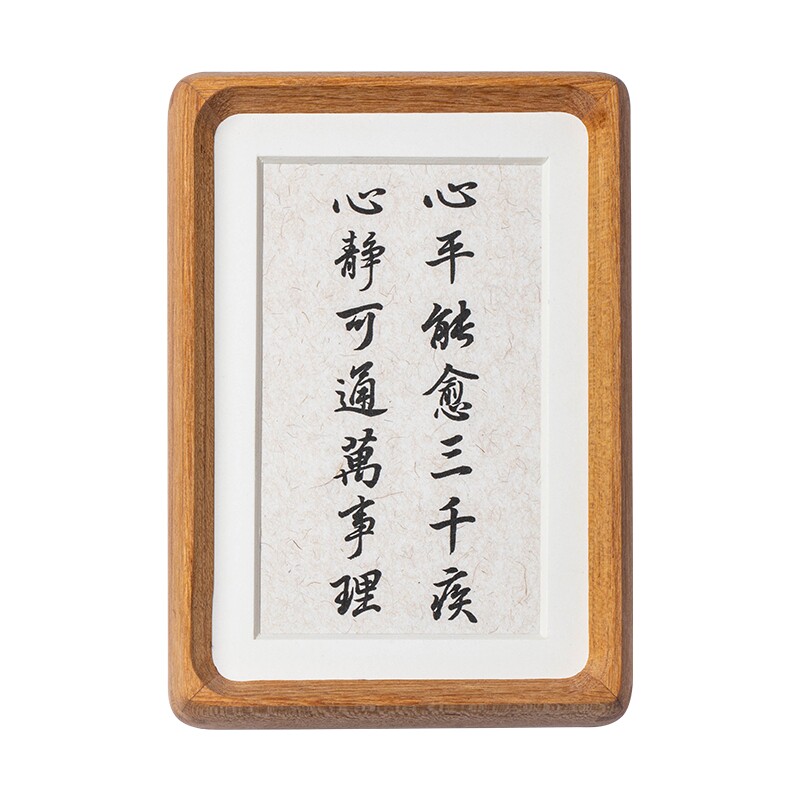 心平能愈三千疾
心静可通萬事理